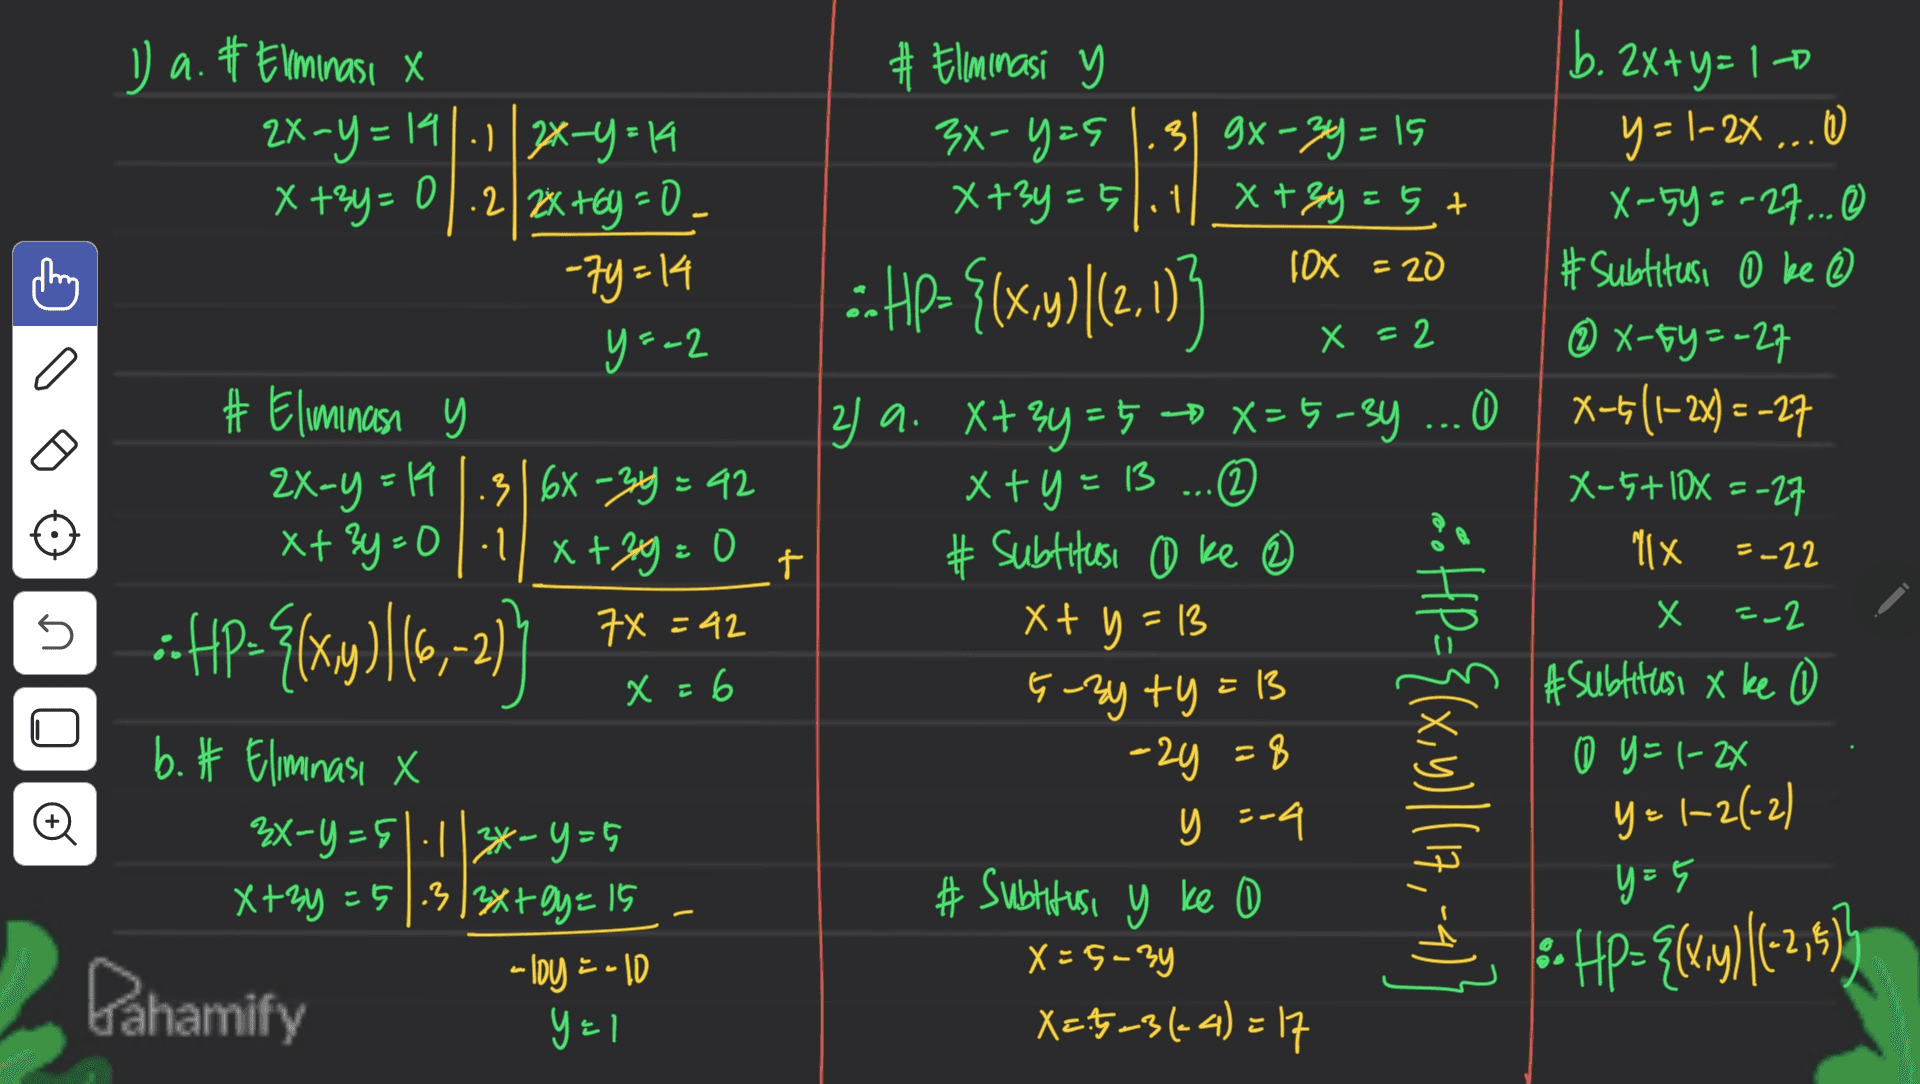 1) a. # Eliminasi x
2x-y=14 | .1 | 2x-y=14
x+3y=0 | .2 | 2x+6y=0 -
-7y=14
y=-2
# Eliminasi y
2x-y=14 | .3 | 6x-3y=42
x+3y=0 | .1 | x+3y=0 +
7x=42
∴HP={(x,y)|(6,-2)}
x=6
b. # Eliminasi x
3x-y=5 | .1 | 3x-y=5
x+3y=5 | .3 | 3x+9y=15 -
-10y=-10
y=1
Pahamify
# Eliminasi y
3x-y=5 | .3 | 9x-3y=15
x+3y=5 | .1 | x+3y=5 +
10x=20
∴HP={(x,y)|(2,1)}
x=2
2) a. x+3y=5 → x=5-3y ...①
x+y=13 ...②
# Subtitusi ① ke ②
x+y=13
5-3y+y=13
-2y=8
y=-4
# Subtitusi y ke ①
x=5-3y
x=5-3(-4)=17
∴HP={(x,y)|(17,-4)}
b. 2x+y=1 →
y=1-2x ...①
x-5y=-27...②
# Subtitusi ① ke ②
② x-5y=-27
x-5(1-2x)=-27
x-5+10x=-27
11x=-22
x=-2
# Subtitusi x ke ①
① y=1-2x
y=1-2(-2)
y=5
∴HP={(x,y)|(-2,5)}